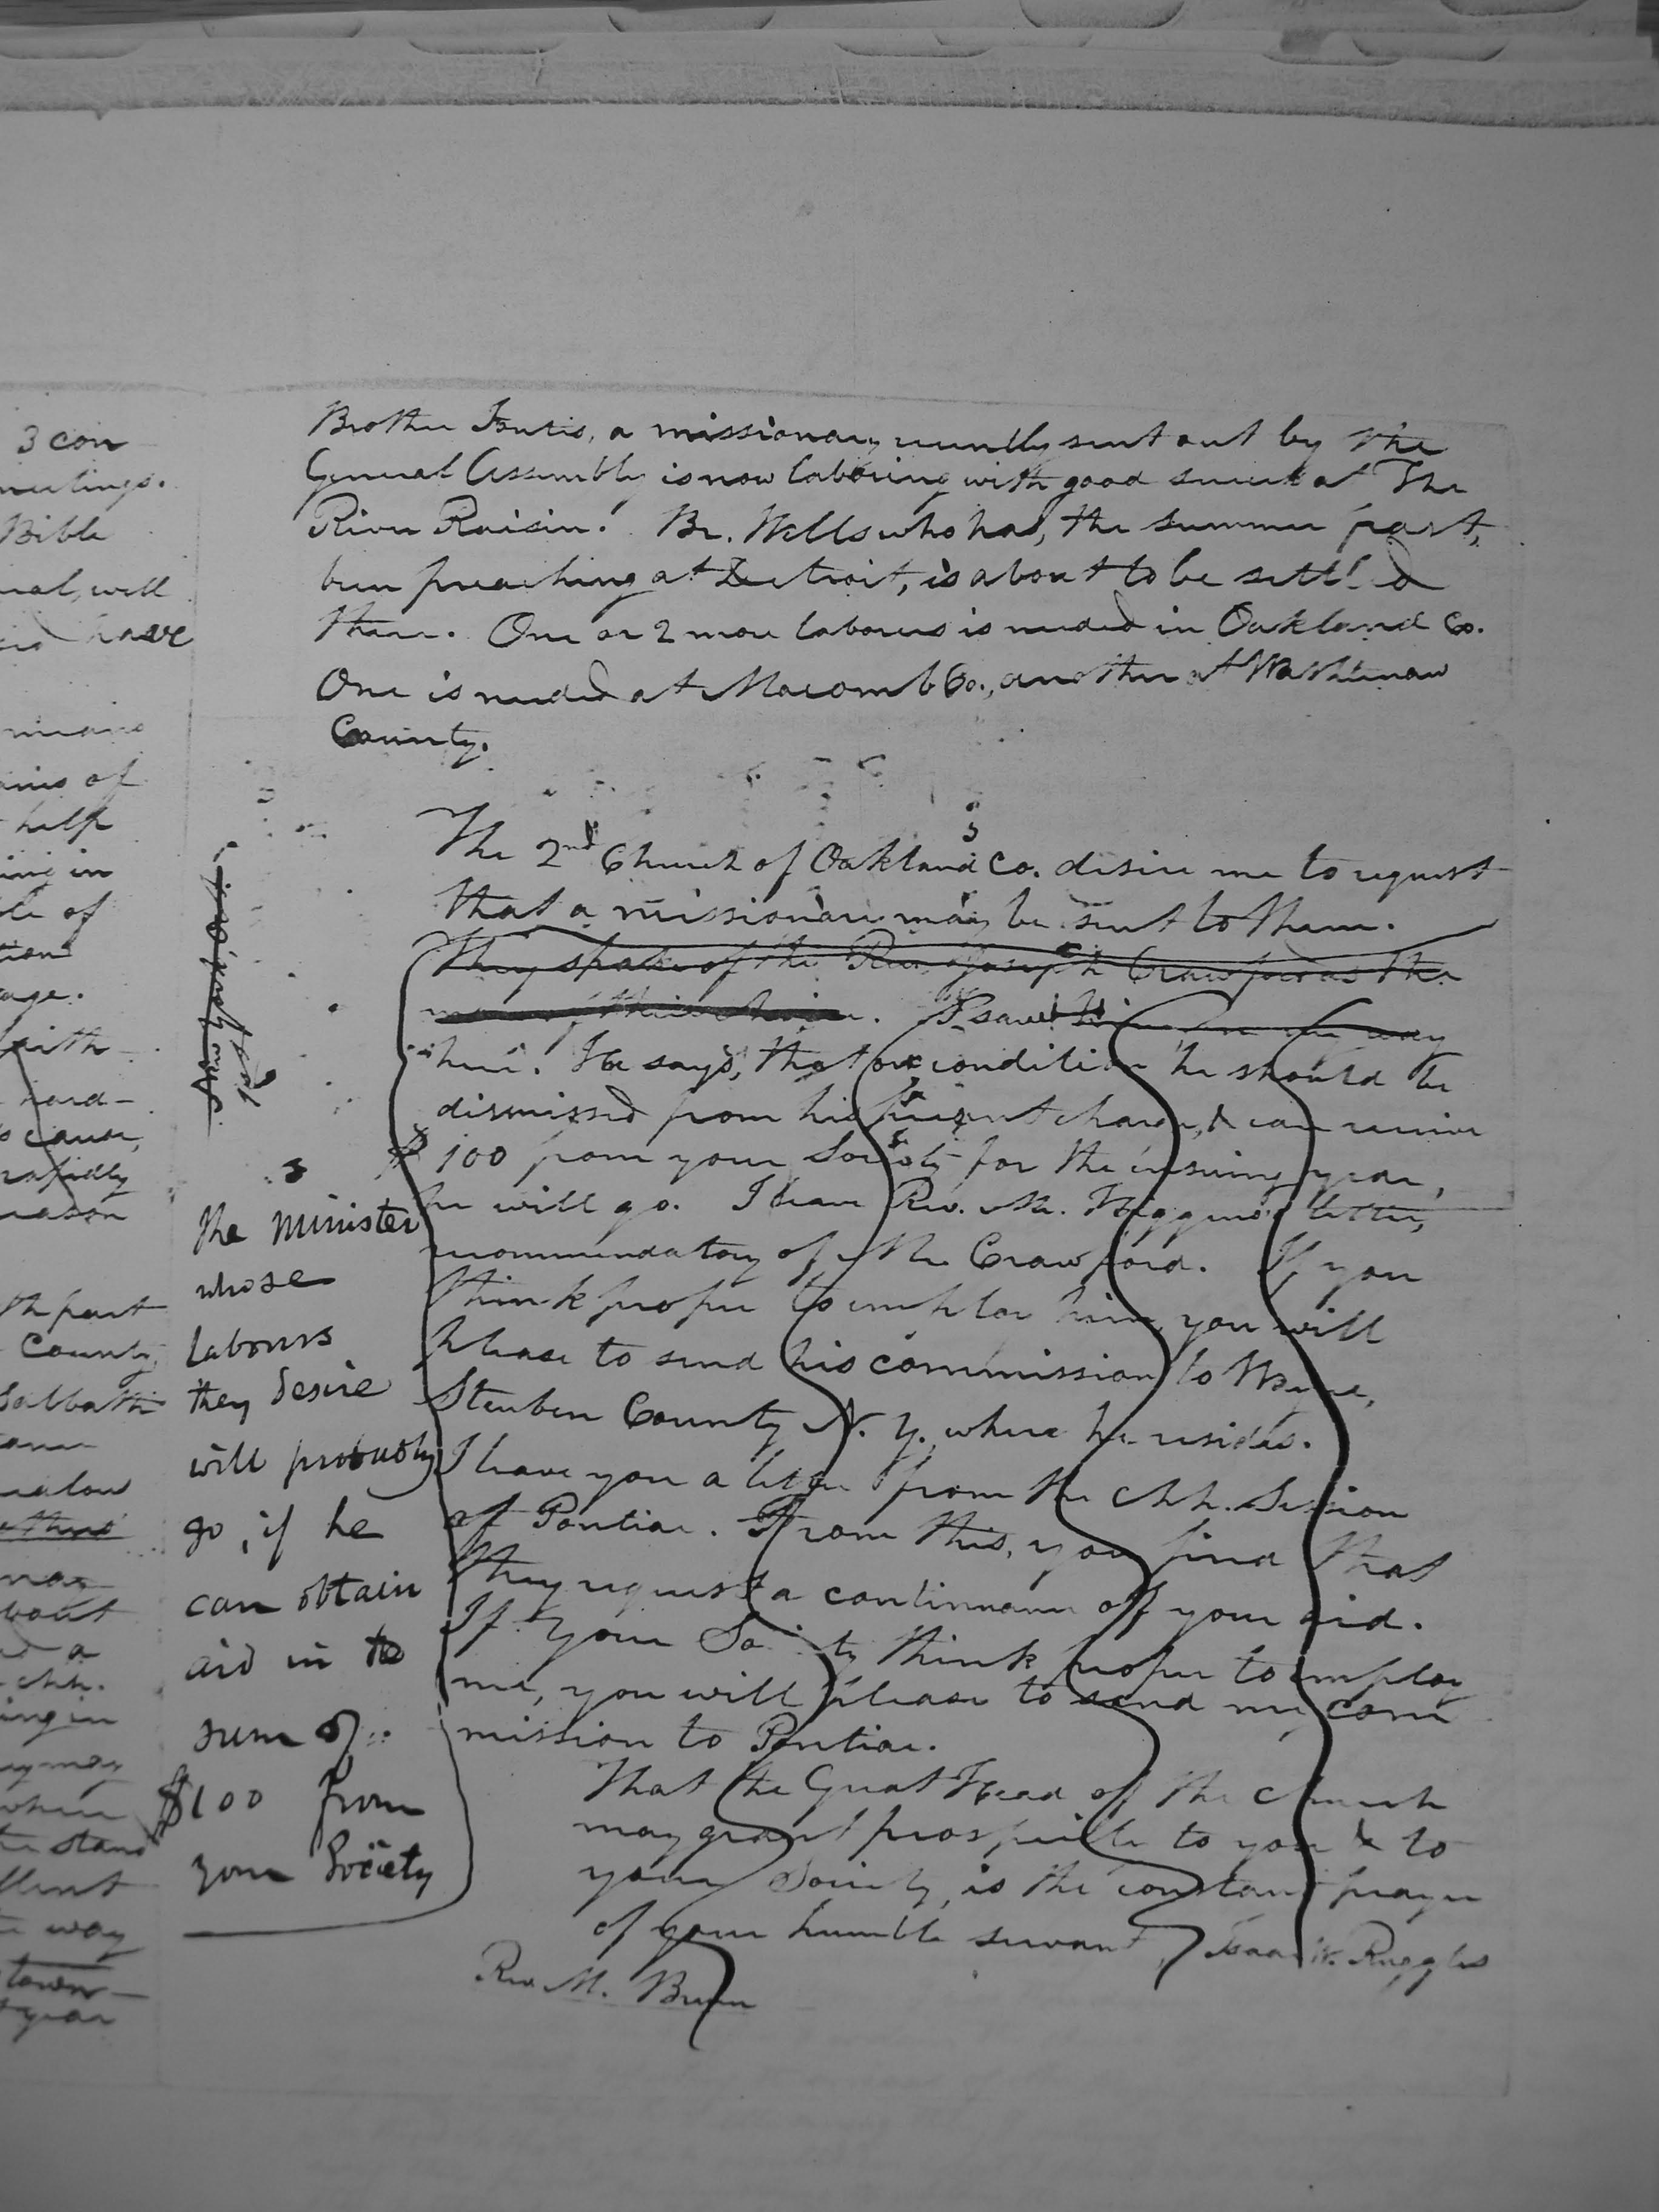 3 con
meetings.
Bible
will
have
means
of
help
ing in
of
tion
age.
with
hard-
cause,
rapidly
reason
th part
County
Sabbath
may
about
a
chh.
ing in
may
when
stand
way
town
year
Brother a missionary recently sent out by the
General Assembly is now laboring with good success at The
River Raisin. Br. Wells who has, the summer past,
been preaching at Detroit, is about to be settled
there. One or 2 more laborers is needed in Oakland Co.
One is needed at Macomb Co., another at Washtenaw
County.
The 2nd Church of Oakland Co. desire me to request
that a missionary may be sent to them.
They spake of the Rev. Joseph Crawford as the
man of their choice. I saw him, on my way
here. He says, that on condition he should be
dismissed from his present charge, & can receive
$100 from your Society for the ensuing year,
he will go. I leave Rev. Mr. Higgins' letter,
recommendatory of Mr. Crawford. If you
think proper to employ him, you will
please to send his commission to Wayne,
Steuben County N. Y. where he resides.
I leave you a letter from the Chh. Session
of Pontiac. From this, you find that
they request a continuance of your aid.
If your Society think proper to employ
me, you will please to send my com
mission to Pontiac.
That the Great Head of the church
may grant prosperity to you & to
your Society, is the constant prayer
of your humble servant, Isaac W. Ruggles
Rev. M. Bruen
the minister
whose
labours
they desire
will probably
go, if he
can obtain
aid in the
sum of
$100 from
your Society